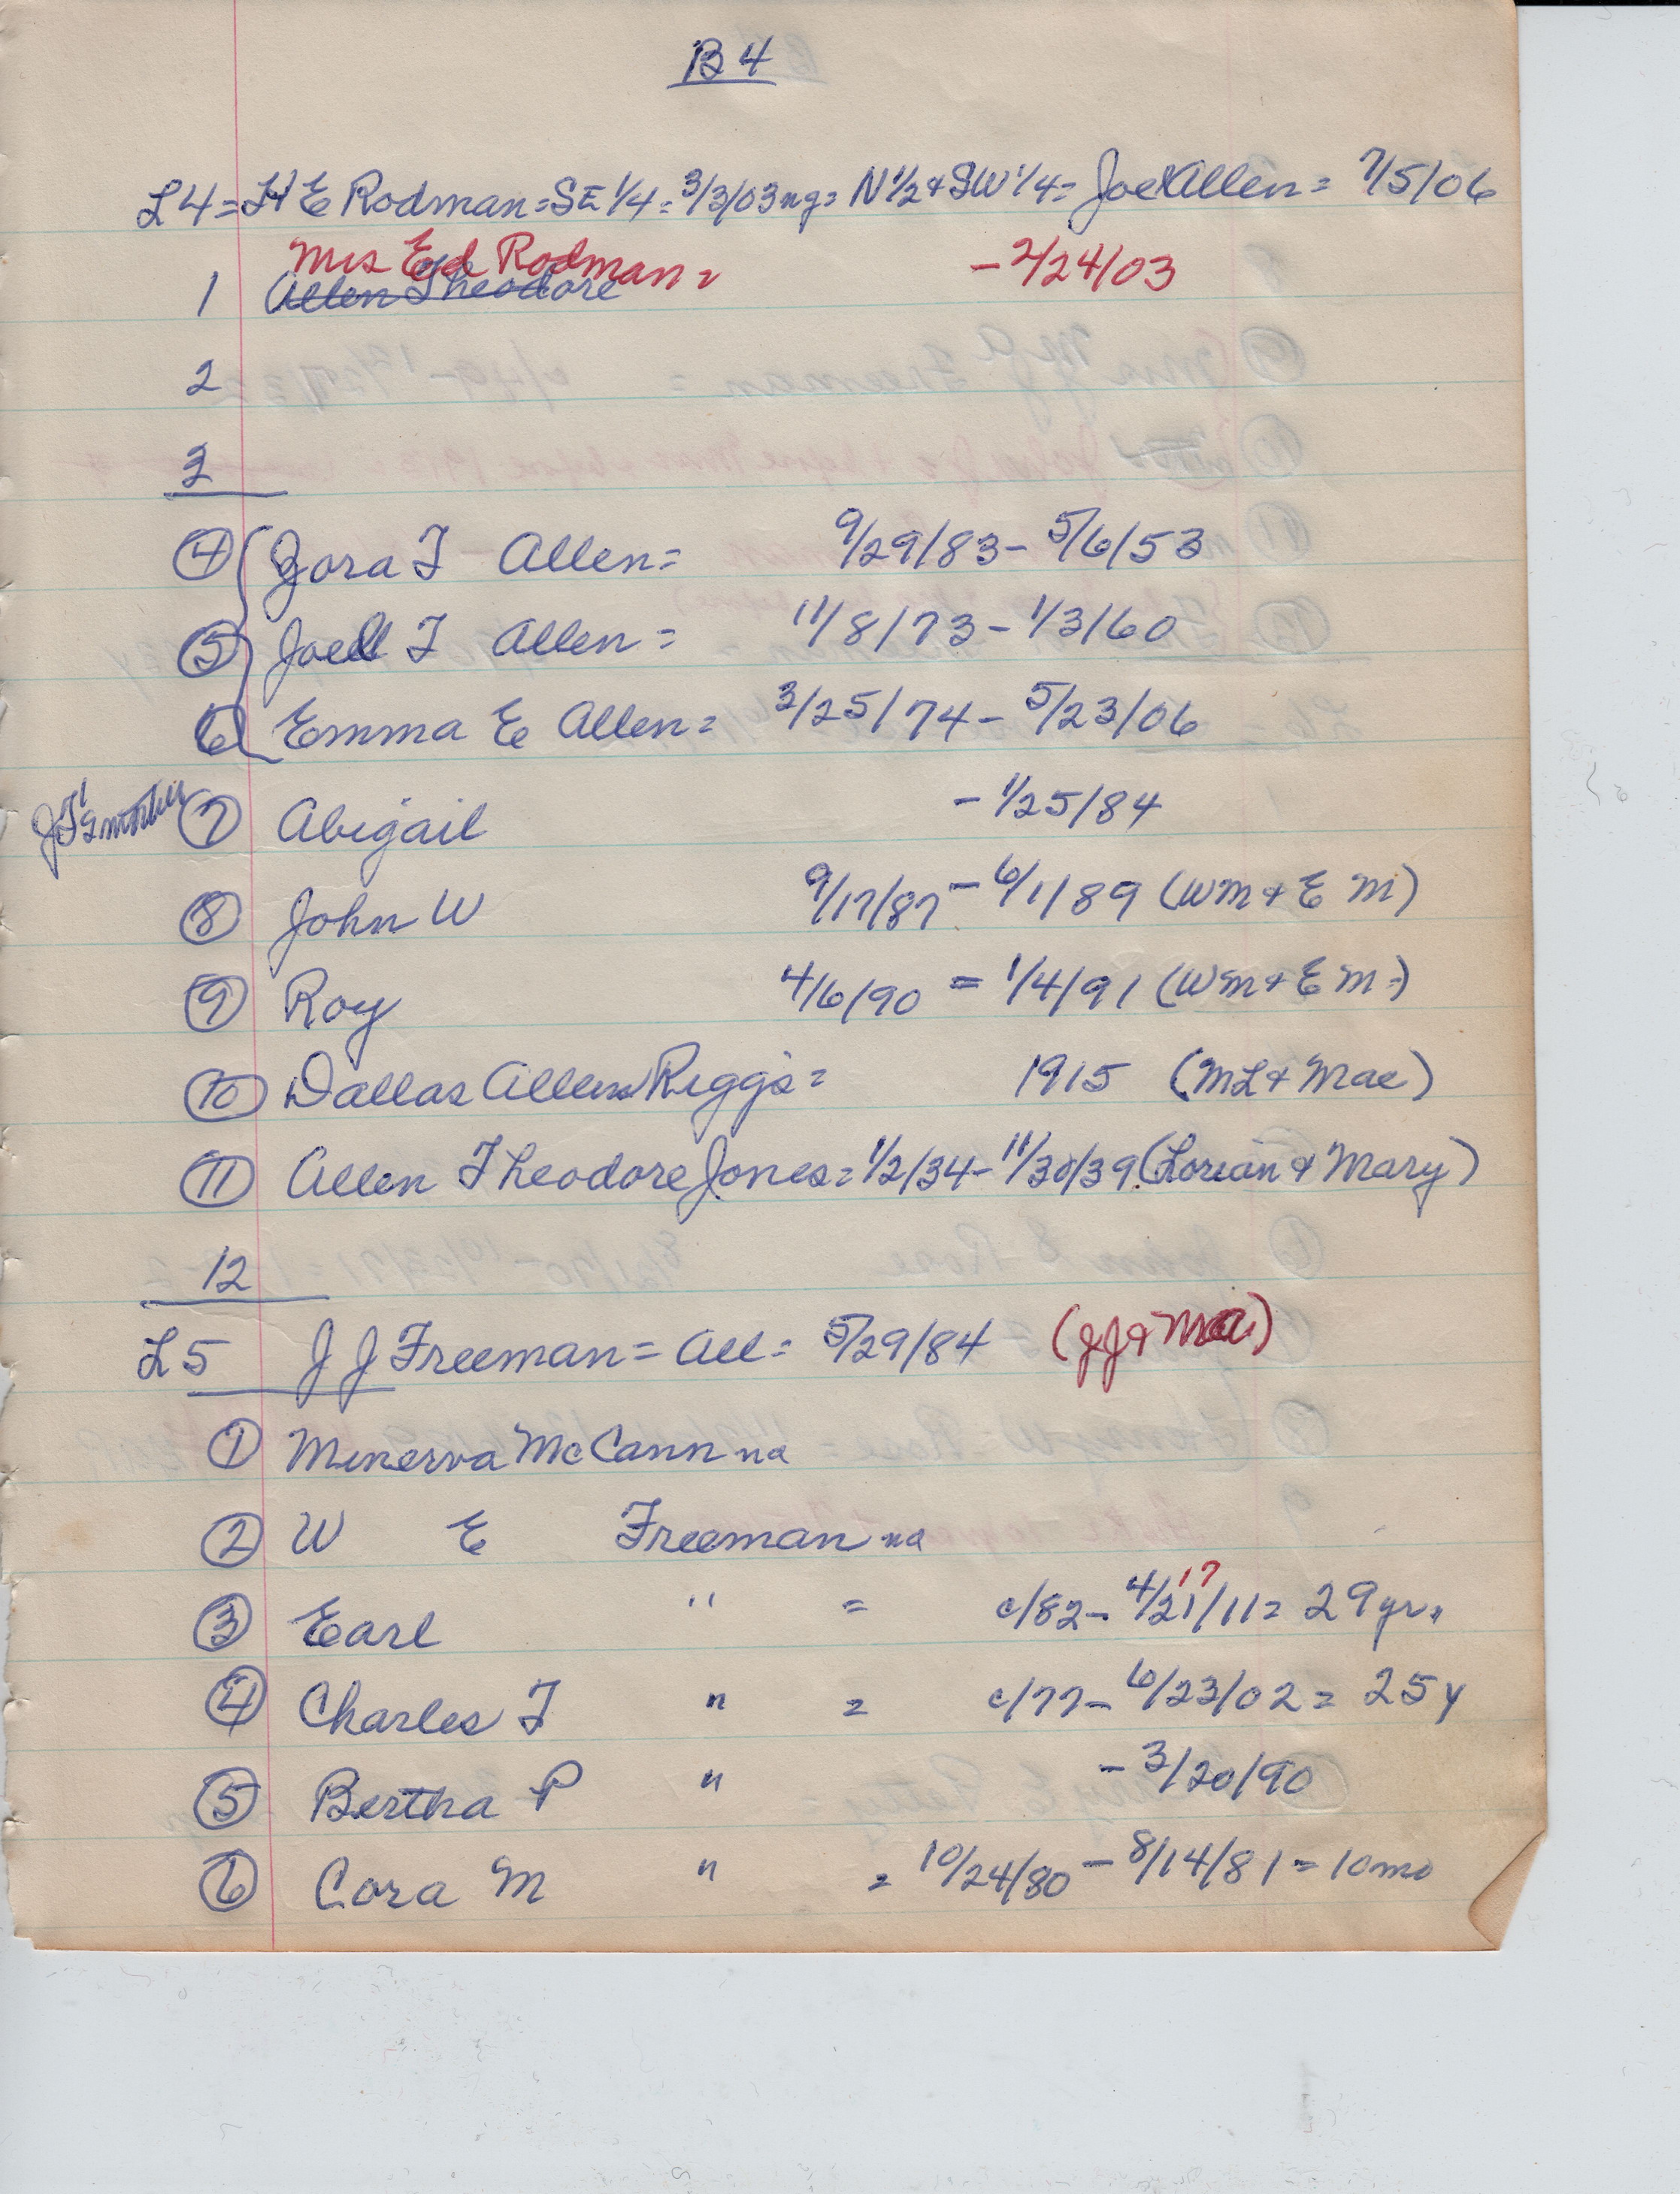 B4
L4 = H E Rodman = SE 1/4 = 3/3/03 ng = N 1/2 + SW 1/4 = Joe Allen = 7/5/06
Mrs Ed Rodman = - 2/24/03
1 Allen Theodore
2
3
4 Zora T Allen = 9/29/83 - 5/6/53
5 Joell T Allen = 11/8/73 - 1/3/60
6 Emma E Allen = 3/25/74 - 5/23/06
JT's mother 7 Abigail - 1/25/84
8 John W 9/17/87 - 6/1/89 (Wm + E M)
9 Roy 4/6/90 = 1/4/91 (Wm + E M)
10 Dallas Allen Riggs = 1915 (ML + Mae)
11 Allen Theodore Jones = 1/2/34 - 11/30/39 (Lorian + Mary)
12
L5 J J Freeman = All = 5/29/84 (JJ + MA)
1 Minerva McCann na
2 W E Freeman na
17
3 Earl " = c/82 - 4/21/11 = 29 yr.
4 Charles T " = c/77 - 6/23/02 = 25 y
5 Bertha P " - 3/20/90
6 Cora M " = 10/24/80 - 8/14/81 = 10 mo